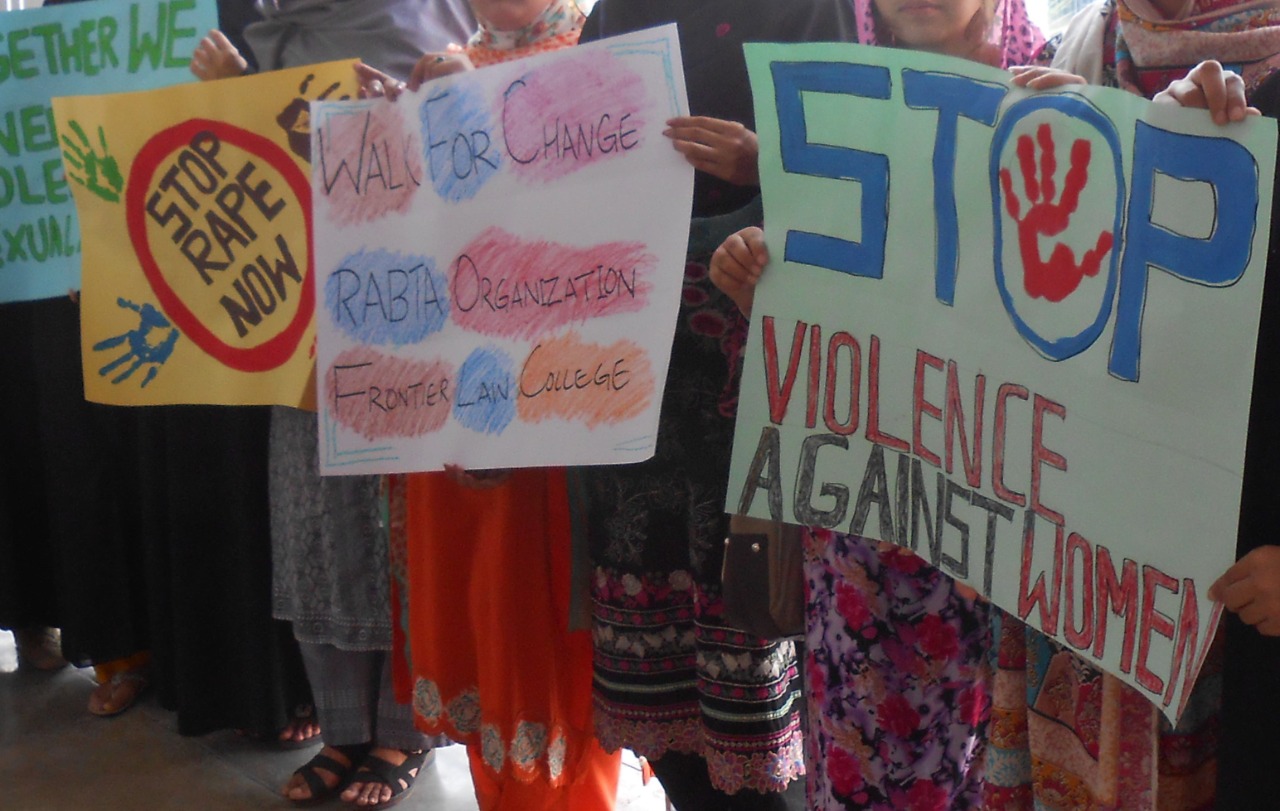 GETHER WE
STOP
RAPE
NOW
WALK FOR CHANGE
RABTA ORGANIZATION
FRONTIER LAW COLLEGE
STOP
VIOLENCE
AGAINST WOMEN